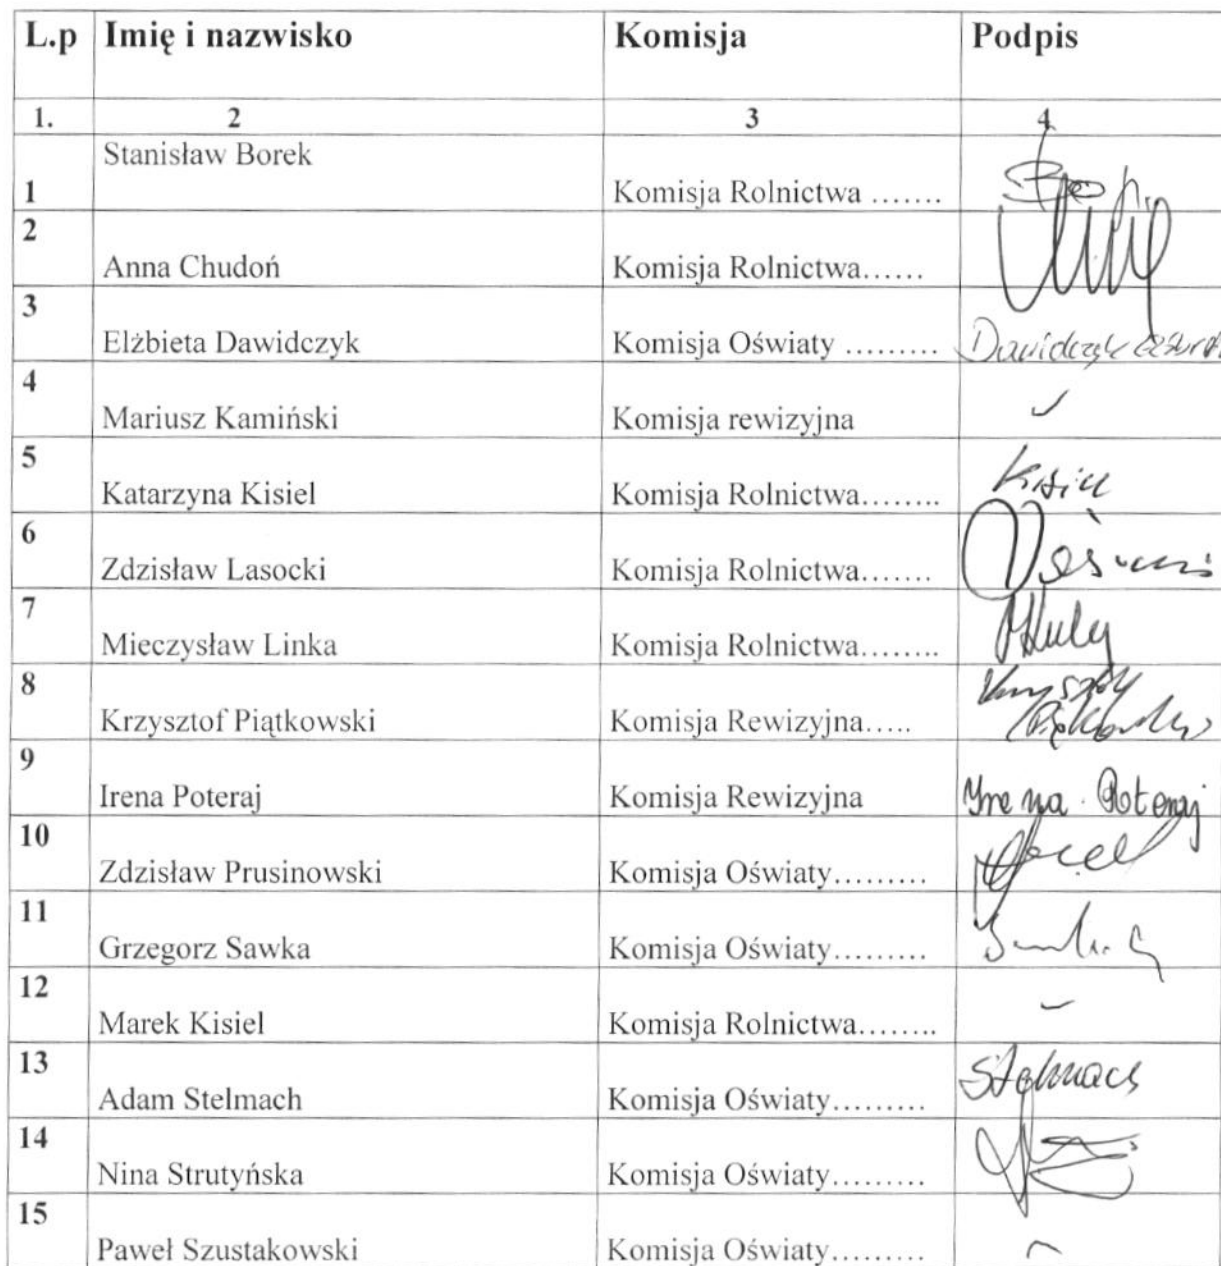 L.p Imię i nazwisko Komisja Podpis
1. 2 3 4
Stanisław Borek
1 Komisja Rolnictwa …….
2
Anna Chudoń Komisja Rolnictwa……
3
Elżbieta Dawidczyk Komisja Oświaty ……… Dawidczyk
4
Mariusz Kamiński Komisja rewizyjna
5
Katarzyna Kisiel Komisja Rolnictwa…….. Kisiel
6
Zdzisław Lasocki Komisja Rolnictwa…….
7
Mieczysław Linka Komisja Rolnictwa……..
8
Krzysztof Piątkowski Komisja Rewizyjna….. Krzysztof
Piątkowski
9
Irena Poteraj Komisja Rewizyjna Irena Poteraj
10
Zdzisław Prusinowski Komisja Oświaty………
11
Grzegorz Sawka Komisja Oświaty………
12
Marek Kisiel Komisja Rolnictwa……..
13
Adam Stelmach Komisja Oświaty……… Stelmach
14
Nina Strutyńska Komisja Oświaty………
15
Paweł Szustakowski Komisja Oświaty………